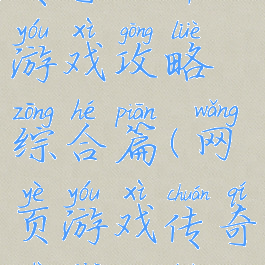 yóu xì gōng lüè
游戏攻略
zōng hé piān wǎng
综合篇(网
yè yóu xì chuán qí
页游戏传奇